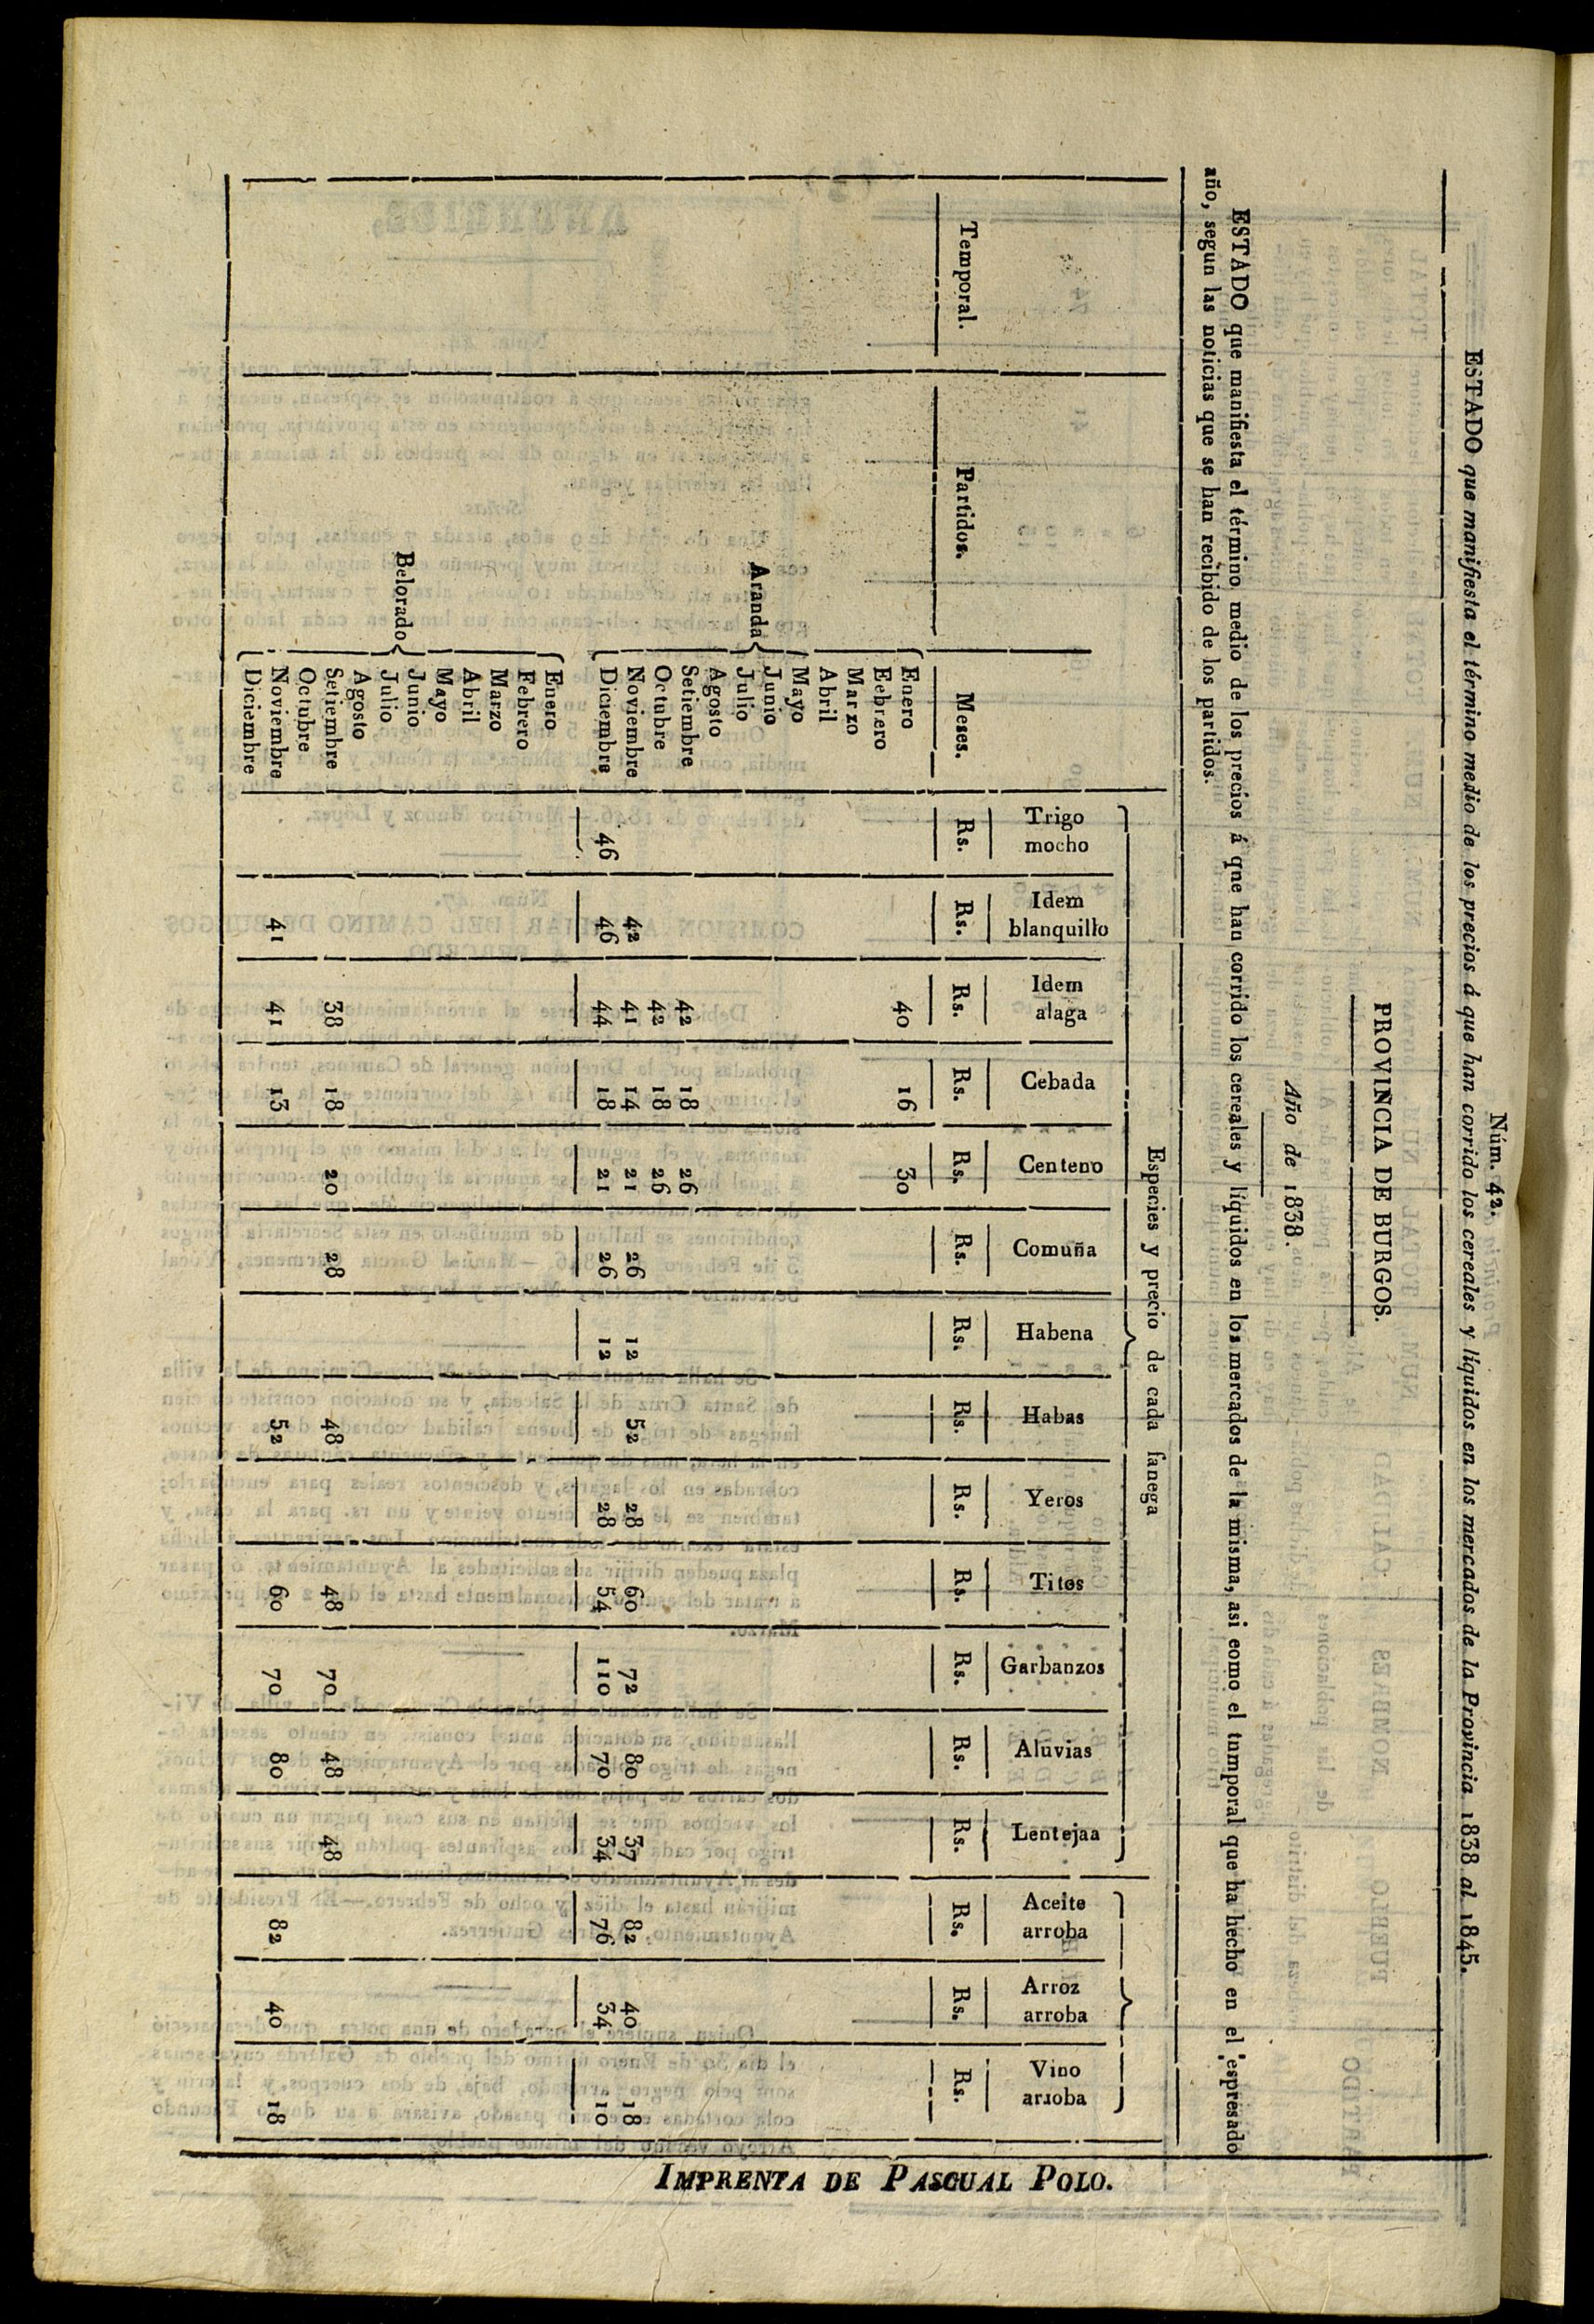 Núm. 42.
ESTADO que manifiesta el término medio de los precios á que han corrido los cereales y líquidos en los mercados de la Provincia 1838 al 1845.
PROVINCIA DE BURGOS.
Año de 1838.
ESTADO que manifiesta el término medio de los precios á qne han corrido los cereales y líquidos en los mercados de la misma, asi eomo el tnmporal que ha hecho en el espresado
año, segun las noticias que se han recibido de los partidos.
Especies y precio de cada fanega
Trigo mocho Idem blanquillo Idem alaga Cebada Centeno Comuña Habena Habas Yeros Titos Garbanzos Aluvias Lentejaa Aceite arroba Arroz arroba Vino arroba
Temporal. Partidos. Meses. Rs. Rs. Rs. Rs. Rs. Rs. Rs. Rs. Rs. Rs. Rs. Rs. Rs. Rs. Rs. Rs.
Aranda
Enero 40 16 30
Eebrero
Marzo
Abril
Mayo
Junio
Julio
Agosto
Setiembre 42 18 26
Octubre 42 18 26
Noviembre 42 41 14 21 26 12 52 28 60 72 80 37 82 40 18
Diciembre 46 46 44 18 21 26 12 28 54 110 70 34 76 34 10
Belorado
Enero
Febrero
Marzo
Abril
Mayo
Junio
Julio
Agosto
Setiembre 38 18 20 28 48 48 70 48 48
Octubre
Noviembre 41 41 13 52 60 70 80 82 40 18
Diciembre
IMPRENTA DE PASCUAL POLO.